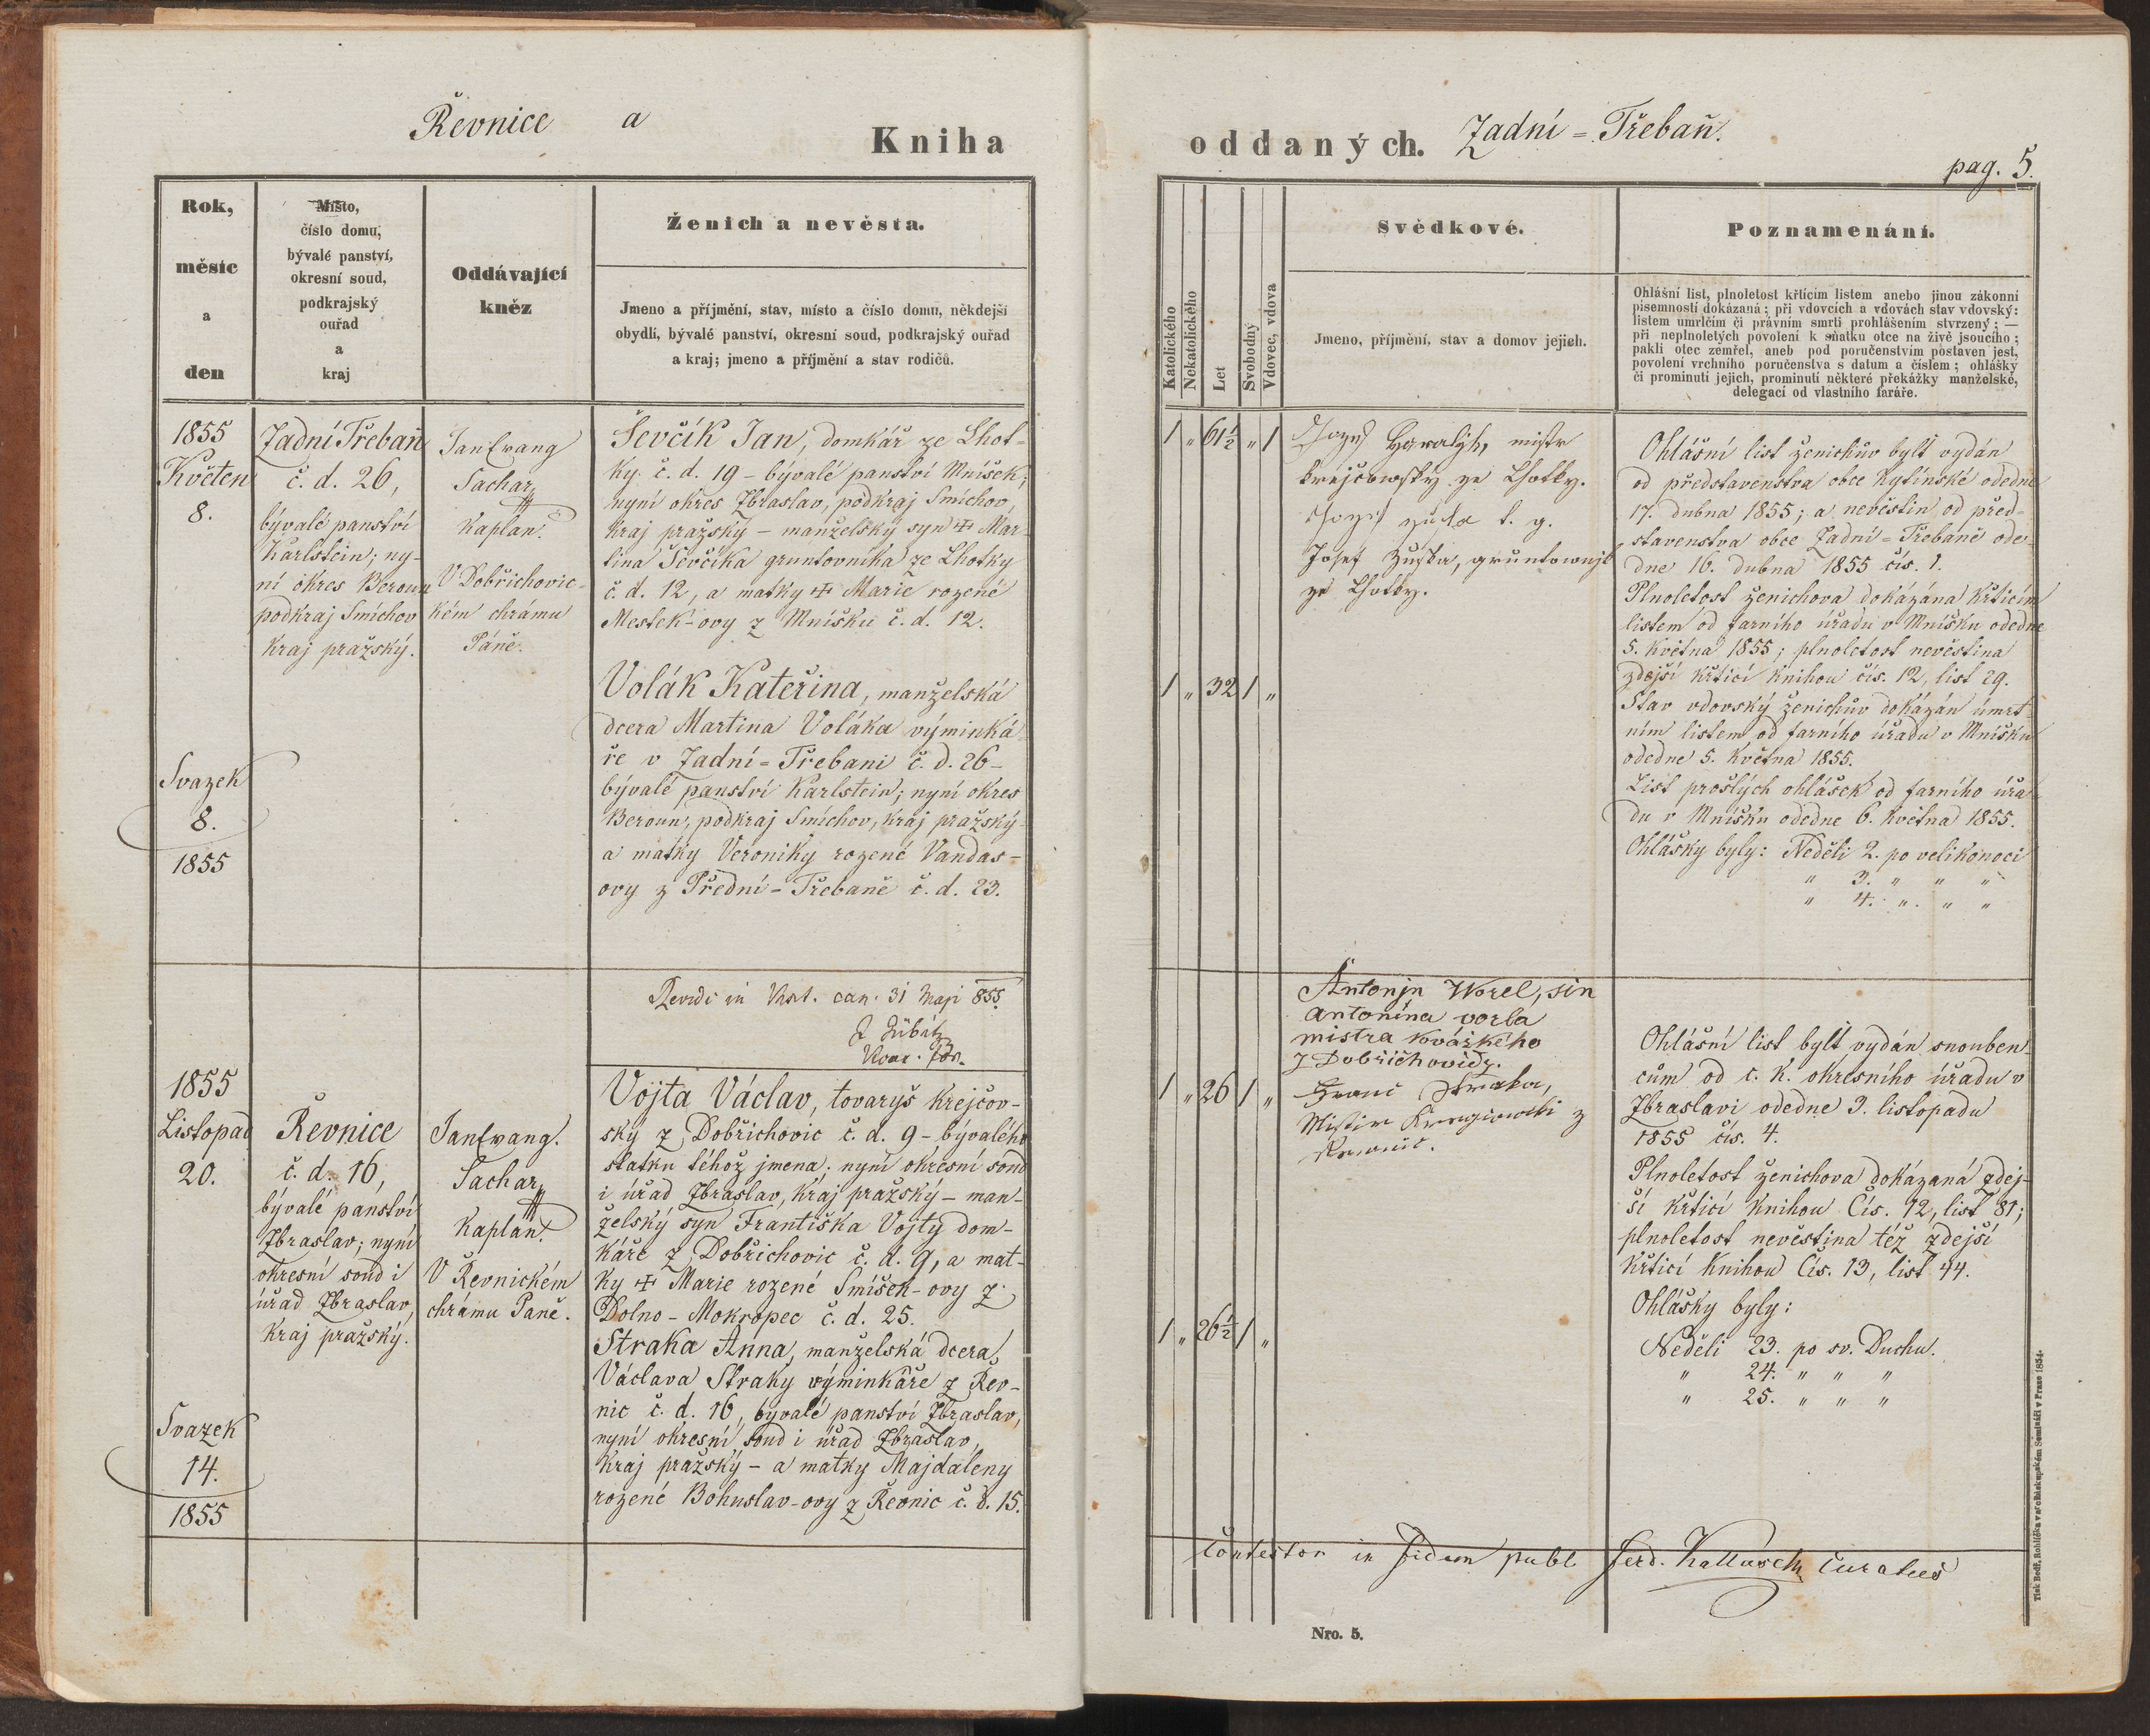 Řevnice a
Kniha
Rok,
měsíc
a
den
Místo,
číslo domu,
bývalé panství,
okresní soud,
podkrajský
ouřad
a
kraj
Oddávající
kněz
Ženich a nevěsta.
Jmeno a příjmění, stav, místo a číslo domu, někdejší
obydlí, bývalé panství, okresní soud, podkrajský ouřad
a kraj; jmeno a příjmění a stav rodičů.
1855
Květen
8.
Svazek
8.
1855
Zadní Třebaň
č. d. 26,
bývalé panství
Karlstein; ny-
ní okres Beroun
podkraj Smíchov
kraj pražský.
Jan Evang
Sachar
Kaplan.
V Dobřichovic-
kém chrámu
Páně.
Ševčík Jan, domkář ze Lhot-
ky č. d. 19 – bývalé panství Mníšek,
nyní okres Zbraslav, podkraj Smíchov,
kraj pražský – manželský syn ✠ Mar-
tina Ševčíka gruntovníka ze Lhotky
č. d. 12, a matky ✠ Marie rozené
Mestek-ovy z Mníšku č. d. 12.
Volák Kateřina, manželská
dcera Martina Voláka výminká-
ře v Zadní-Třebani č. d. 26 –
bývalé panství Karlstein; nyní okres
Beroun, podkraj Smíchov, kraj pražský –
a matky Veroniky rozené Vandas-
ovy z Přední-Třebaně č. d. 23.
Revidi in can. 31 Maji 855.
1855
Listopad
20.
Svazek
14.
1855
Řevnice
č. d. 16,
bývalé panství
Zbraslav; nyní
okresní soud i
úřad Zbraslav,
kraj pražský.
Jan Evang.
Sachar
Kaplan.
V Řevnickém
chrámu Páně.
Vojta Václav, tovaryš krejčov-
ský z Dobřichovic č. d. 9 – bývalého
statku téhož jmena; nyní okresní soud
i úřad Zbraslav, kraj pražský – man-
želský syn Františka Vojty dom-
káře z Dobřichovic č. d. 9, a mat-
ky ✠ Marie rozené Smíšek-ovy z
Dolno-Mokropec č. d. 25.
Straka Anna, manželská dcera
Václava Straky výminkáře z Řev-
nic č. d. 16, bývalé panství Zbraslav,
nyní okresní soud i úřad Zbraslav,
kraj pražský – a matky Majdaleny
rozené Bohuslav-ovy z Řevnic č. d. 15.
oddaných. Zadní-Třebaň.
pag. 5.
Katolického
Nekatolického
Let
Svobodný
Vdovec, vdova
Svědkové.
Jmeno, příjmění, stav a domov jejich.
Poznamenání.
Ohlášní list, plnoletost křtícím listem anebo jinou zákonní
písemností dokázaná; při vdovcích a vdovách stav vdovský:
listem umrlčím či právním smrti prohlášením stvrzený; —
při neplnoletých povolení k sňatku otce na živě jsoucího;
pakli otec zemřel, aneb pod poručenstvím postaven jest,
povolení vrchního poručenstva s datum a číslem; ohlášky
či prominutí jejich, prominutí některé překážky manželské,
delegací od vlastního faráře.
1 „ 61½ „ 1
1 „ 32 1 „
mistr
krejčowský ze Lhotky.
Josef Zuska, gruntownjk
ze Lhotky.
Ohlášní list ženichův bylť vydán
od představenstva obce Kytínské odedne
17. dubna 1855; a nevěstin od před-
stavenstva obce Zadní-Třebaně ode-
dne 16. dubna 1855 čís. 1.
Plnoletost ženichova dokázána křticím
listem od farního úřadu v Mníšku odedne
5. května 1855; plnoletost nevěstina
zdejší křticí knihou čís. 12, list 29.
Stav vdovský ženichův dokázán úmrt-
ním listem od farního úřadu v Mníšku
odedne 5. května 1855.
List prošlých ohlášek od farního úřa-
du v Mníšku odedne 6. května 1855.
Ohlášky byly: Neděli 2. po velikonoci
„ 3. „ „ „
„ 4. „ „ „
1 „ 26 1 „
1 „ 26½ 1 „
Antonjn Worel, sin
Antonína vorla
mistra kovářkého
z Dobřichovicz.
Straka,
z
Ohlášní list bylť vydán snouben-
cům od c. k. okresního úřadu v
Zbraslavi odedne 3. listopadu
1855 čís. 4.
Plnoletost ženichova dokázaná zdej-
ší křticí knihou Čís. 12, list 81;
plnoletost nevěstina též zdejší
křticí Knihou Čís. 13, list 44.
Ohlášky byly:
Neděli 23. po sv. Duchu.
„ 24. „ „ „
„ 25. „ „ „
Contestor in fidem publ ferd. Kallasch curatus
Nro. 5.
Tisk Bedř. Rohlíčka v arcibiskupském Semináři v Praze 1854.